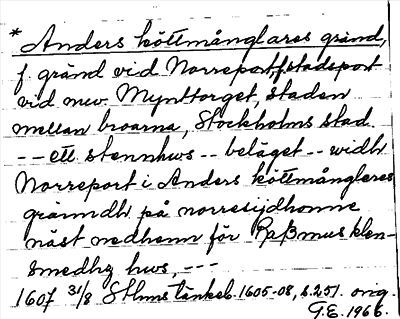 * Anders köttmånglares gränd,
f. gränd vid Norreport, stadsport
vid nuv. Mynttorget, staden
mellan broarna, Stockholms stad.
-- ett stennhws -- beläget -- widh
Norreport i Anders köttmångleres
gränndh på norresijdhonne
näst nedhenn för Raßmus klen-
smedhz hws, ---
1607 31/8 Sthms tänkeb. 1605-08, s. 251. orig.
G.E. 1966.